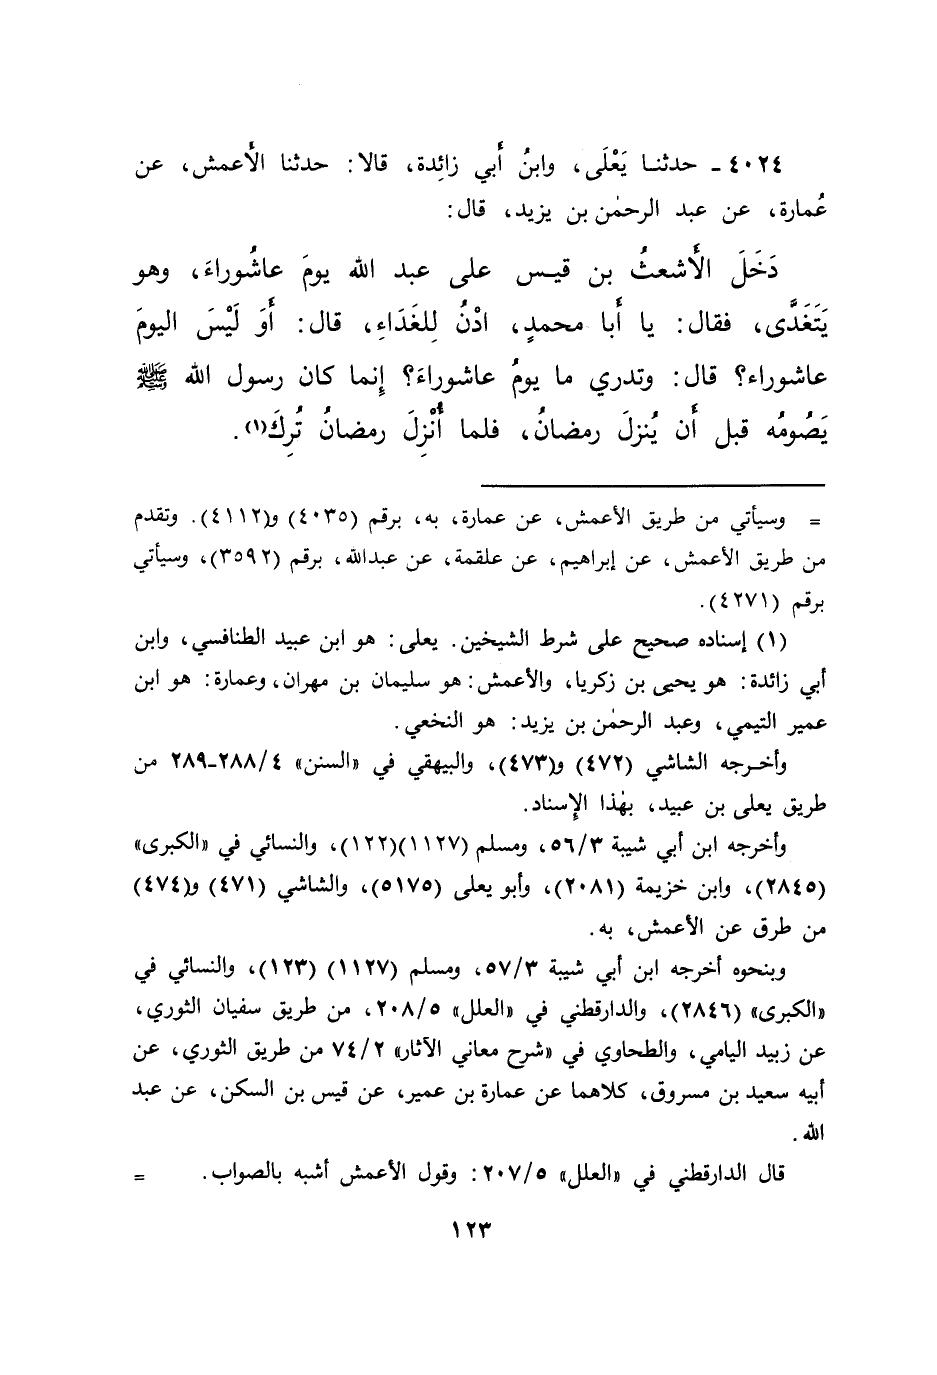 ٤٠٢٤ - حدثنا يَعْلَى، وابنُ أَبي زائِدة، قالا: حدثنا الأَعمش، عن
عُمارة، عن عبد الرحمٰن بن يزيد، قال:
دَخَلَ الأَشعثُ بن قيس على عبد الله يومَ عاشُوراءَ، وهو
يَتَغَدَّى، فقال: يا أَبا محمدٍ، ادْنُ لِلغَدَاءِ، قال: أَوَ لَيْسَ اليومَ
عاشوراء؟ قال: وتدري ما يومُ عاشوراءَ؟ إِنما كان رسول الله ﷺ
يَصُومُه قبل أَن يُنزلَ رمضانُ، فلما أُنْزِلَ رمضانُ تُرِكَ(١).
= وسيأتي من طريق الأعمش، عن عمارة، به، برقم (٤٠٣٥) و(٤١١٢). وتقدم
من طريق الأعمش، عن إبراهيم، عن علقمة، عن عبدالله، برقم (٣٥٩٢)، وسيأتي
برقم (٤٢٧١).
(١) إسناده صحيح على شرط الشيخين. يعلى: هو ابن عبيد الطنافسي، وابن
أبي زائدة: هو يحيى بن زكريا، والأعمش: هو سليمان بن مهران، وعمارة: هو ابن
عمير التيمي، وعبد الرحمٰن بن يزيد: هو النخعي.
وأخرجه الشاشي (٤٧٢) و(٤٧٣)، والبيهقي في «السنن» ٢٨٨/٤-٢٨٩ من
طريق يعلى بن عبيد، بهٰذا الإسناد.
وأخرجه ابن أبي شيبة ٥٦/٣، ومسلم (١١٢٧)(١٢٢)، والنسائي في «الكبرى»
(٢٨٤٥)، وابن خزيمة (٢٠٨١)، وأبو يعلى (٥١٧٥)، والشاشي (٤٧١) و(٤٧٤)
من طرق عن الأعمش، به.
وبنحوه أخرجه ابن أبي شيبة ٥٧/٣، ومسلم (١١٢٧) (١٢٣)، والنسائي في
«الكبرى» (٢٨٤٦)، والدارقطني في «العلل» ٢٠٨/٥، من طريق سفيان الثوري،
عن زبيد اليامي، والطحاوي في «شرح معاني الآثار» ٧٤/٢ من طريق الثوري، عن
أبيه سعيد بن مسروق، كلاهما عن عمارة بن عمير، عن قيس بن السكن، عن عبد
الله.
قال الدارقطني في «العلل» ٢٠٧/٥: وقول الأعمش أشبه بالصواب. =
١٢٣